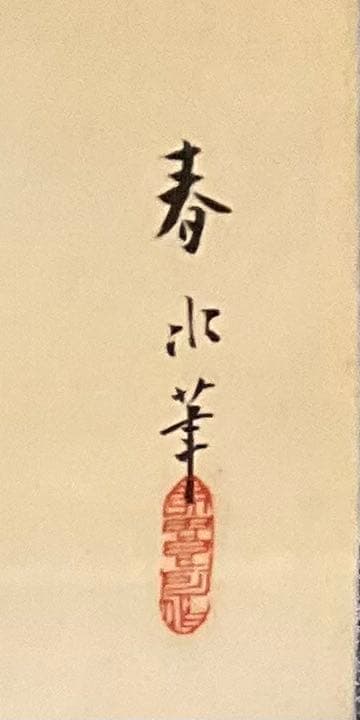 春水筆